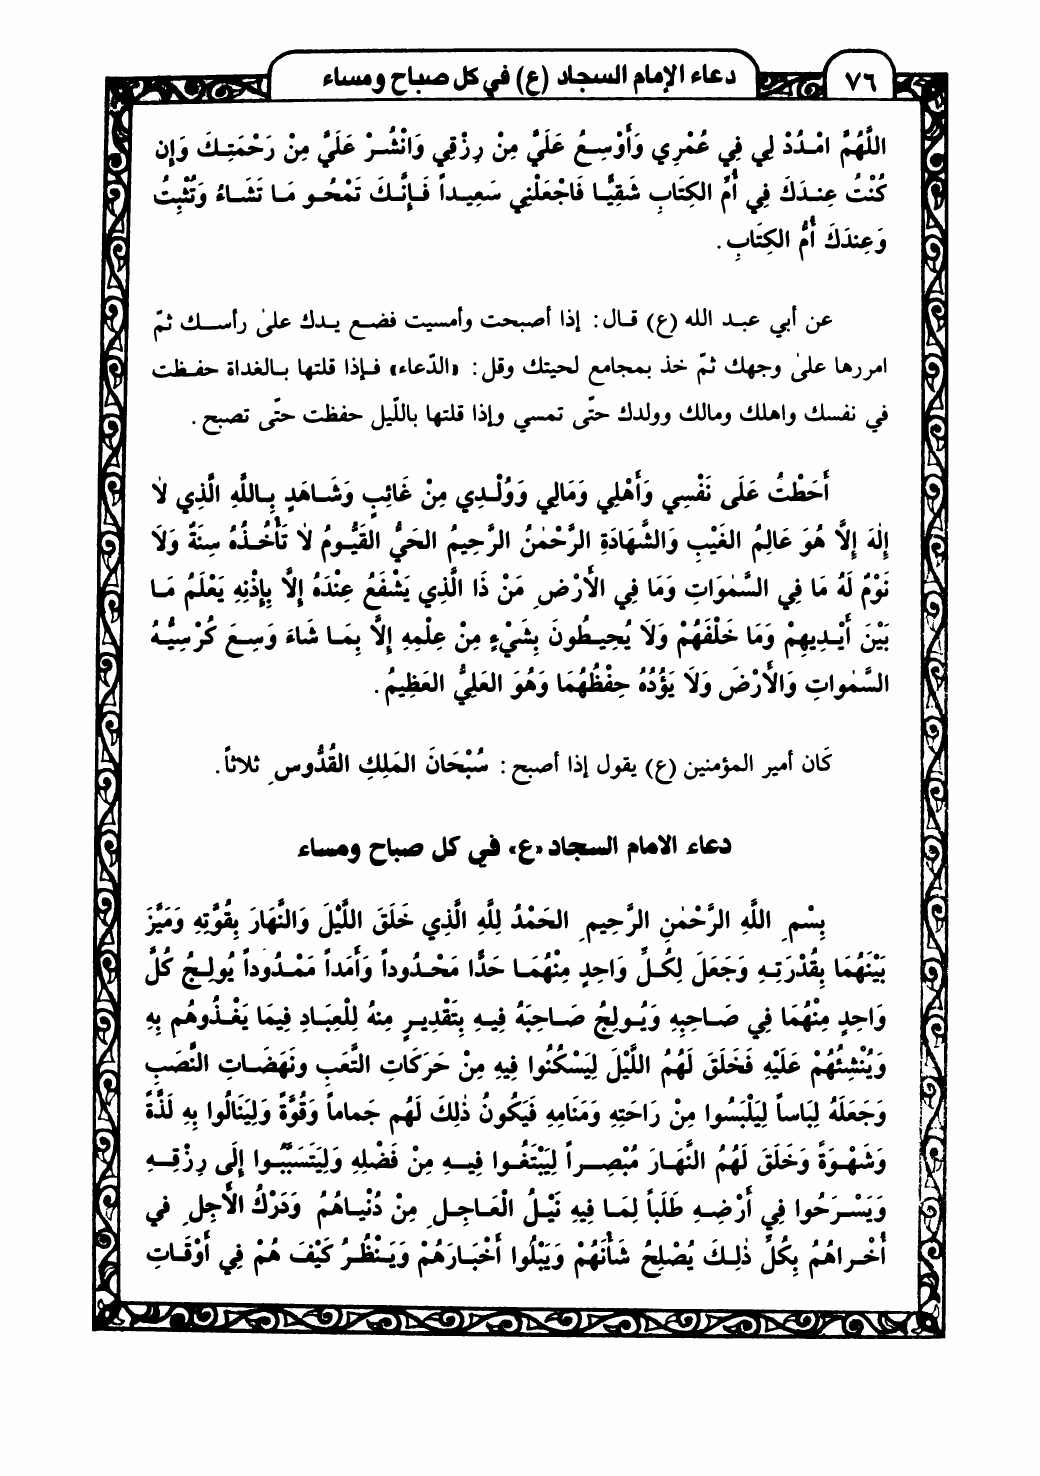 ٧٦
دعاء الإمام السجاد (ع) في كل صباح ومساء
اللَّهُمَّ امْدُدْ لِي فِي عُمْرِي وَأَوْسِعْ عَلَيَّ مِنْ رِزْقِي وَانْشُرْ عَلَيَّ مِنْ رَحْمَتِكَ وَإِن
كُنْتُ عِندَكَ فِي أُمِّ الكِتَابِ شَقِيًّا فَاجْعَلْنِي سَعِيداً فَإِنَّكَ تَمْحُو مَا تَشَاءُ وَتُثْبِتُ
وَعِندَكَ أُمُّ الكِتَابِ.
عن أبي عبد الله (ع) قال: إذا أصبحت وأمسيت فضع يدك علىٰ رأسك ثمّ
امررها علىٰ وجهك ثمّ خذ بمجامع لحيتك وقل: «الدّعاء» فإذا قلتها بالغداة حفظت
في نفسك واهلك ومالك وولدك حتّى تمسي وإذا قلتها باللّيل حفظت حتّى تصبح.
أَحَطْتُ عَلَى نَفْسِي وَأَهْلِي وَمَالِي وَوُلْدِي مِنْ غَائِبٍ وَشَاهَدٍ بِاللَّهِ الَّذِي لاٰ
إِلٰهَ إِلَّا هُوَ عَالِمُ الغَيْبِ وَالشَّهَادَةِ الرَّحْمٰنُ الرَّحِيمُ الحَيُّ القَيُّومُ لاٰ تَأْخُذُهُ سِنَةٌ وَلَا
نَوْمٌ لَهُ مَا فِي السَّمٰوَاتِ وَمَا فِي الأَرْضِ مَنْ ذَا الَّذِي يَشْفَعُ عِنْدَهُ إِلَّا بِإِذْنِهِ يَعْلَمُ مَا
بَيْنَ أَيْدِيهِمْ وَمَا خَلْفَهُمْ وَلَا يُحِيطُونَ بِشَيْءٍ مِنْ عِلْمِهِ إِلَّا بِمَا شَاءَ وَسِعَ كُرْسِيُّهُ
السَّمٰواتِ وَالأَرْضَ وَلَا يَؤُدُهُ حِفْظُهُمَا وَهُوَ العَلِيُّ العَظِيمُ.
كَان أمير المؤمنين (ع) يقول إذا أصبح: سُبْحَانَ المَلِكِ القُدُّوسِ ثلاثاً.
دعاء الامام السجاد «ع» في كل صباح ومساء
بِسْمِ اللَّهِ الرَّحْمٰنِ الرَّحِيمِ الحَمْدُ لِلَّهِ الَّذِي خَلَقَ اللَّيْلَ وَالنَّهَارَ بِقُوَّتِهِ وَمَيَّزَ
بَيْنَهُمَا بِقُدْرَتِهِ وَجَعَلَ لِكُلِّ وَاحِدٍ مِنْهُمَا حَدًّا مَحْدُوداً وَأَمَداً مَمْدُوداً يُولِجُ كُلَّ
وَاحِدٍ مِنْهُمَا فِي صَاحِبِهِ وَيُولِجُ صَاحِبَهُ فِيهِ بِتَقْدِيرٍ مِنهُ لِلْعِبَادِ فِيمَا يَغْذُوهُم بِهِ
وَيُنْشِئُهُمْ عَلَيْهِ فَخَلَقَ لَهُمُ اللَّيْلَ لِيَسْكُنُوا فِيهِ مِنْ حَرَكَاتِ التَّعَبِ وَنَهَضَاتِ النَّصَبِ
وَجَعَلَهُ لِبَاساً لِيَلْبَسُوا مِنْ رَاحَتِهِ وَمَنَامِهِ فَيَكُونُ ذٰلِكَ لَهُم جَماماً وَقُوَّةً وَلِيَنَالُوا بِهِ لَذَّةً
وَشَهْوَةً وَخَلَقَ لَهُمُ النَّهَارَ مُبْصِراً لِيَبْتَغُوا فِيهِ مِنْ فَضْلِهِ وَلِيَتَسَبَّبُوا إِلَى رِزْقِهِ
وَيَسْرَحُوا فِي أَرْضِهِ طَلَباً لِمَا فِيهِ نَيْلُ الْعَاجِلِ مِنْ دُنْيَاهُمْ وَدَرْكُ الأَجِلِ فِي
أُخْراهُمْ بِكُلِّ ذٰلِكَ يُصْلِحُ شَأْنَهُمْ وَيَبْلُوا أَخْبَارَهُمْ وَيَنْظُرُ كَيْفَ هُمْ فِي أَوْقَاتِ